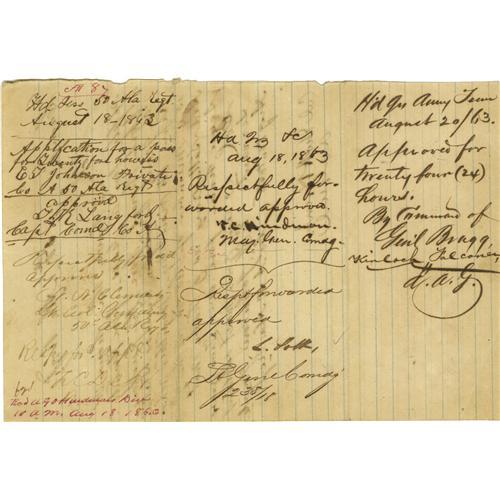 Hd Qrs 50 Ala Regt
August 18-1863
Application for a pass
for twenty four hours
Johnson Private
Co A 50 Ala Regt
approved
Langford
Capt Comdg Co A
Respectfully forwd
approved
50 Ala Regt
Respectfully
Recd A G O Hindmans Divn
10 A.M. Aug 18 1863.
Hd Qrs
Aug 18, 1863
Respectfully for-
warded approved.
T.C. Hindman
Maj Gen. Comdg.
Respt forwarded
approved
Lt Genl Comdg
Hd Qrs Army Tenn
August 20/63.
Approved for
twenty four (24)
hours.
By Command of
Genl Bragg
Kinloch Falconer
A. A. G.